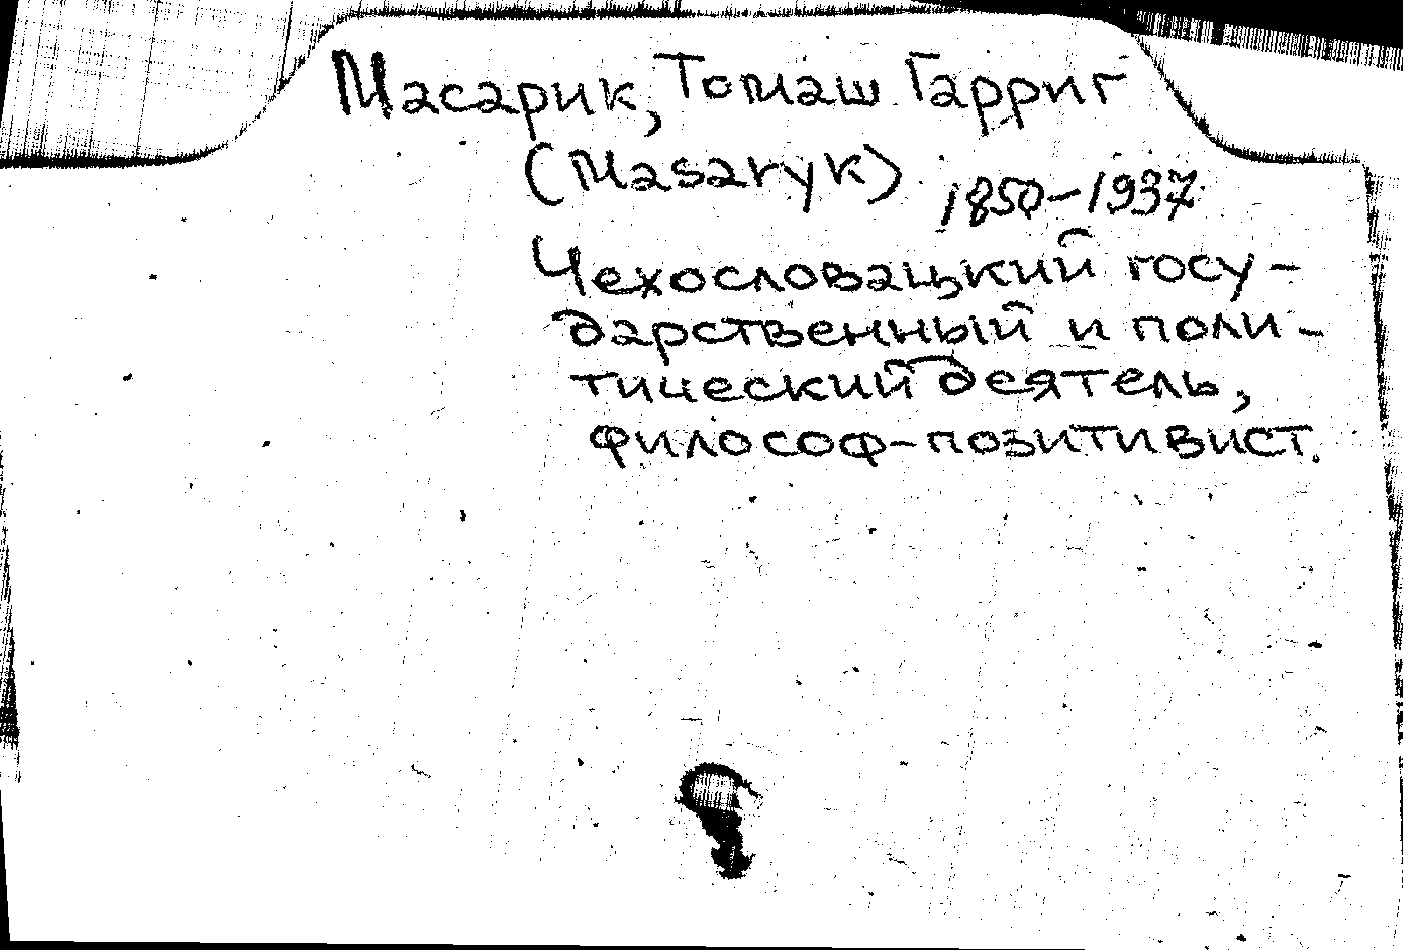 Масарик, Томаш Гарриг
(Masaryk) 1850–1937
Чехословацкий госу-
дарственный и поли-
тический деятель,
философ-позитивист.